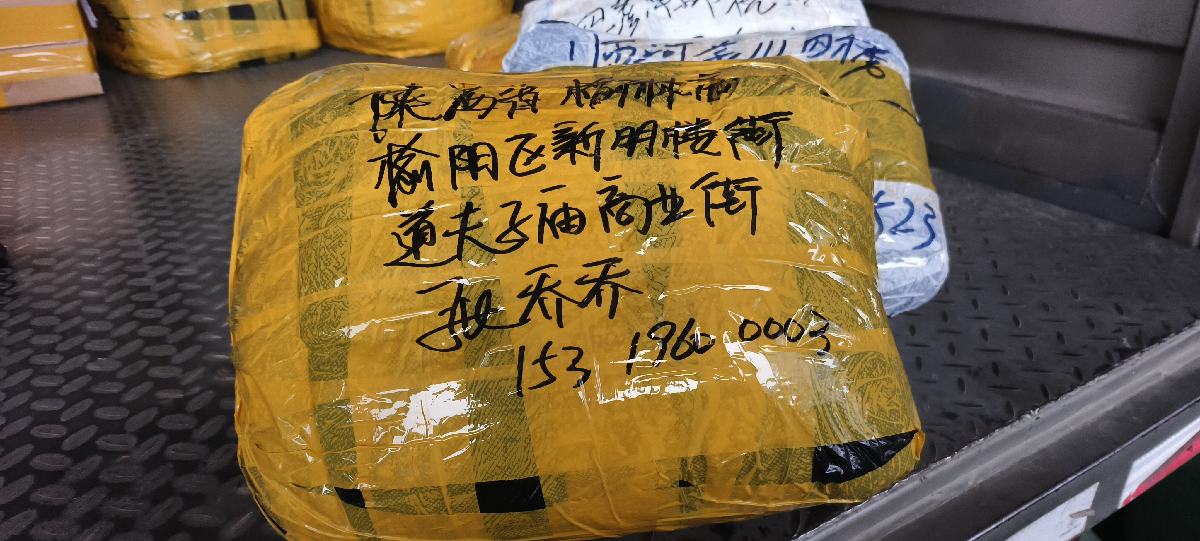 陕西省榆林市
榆阳区新明楼街
道夫子庙商业街
乔乔
153 1960 0003
523